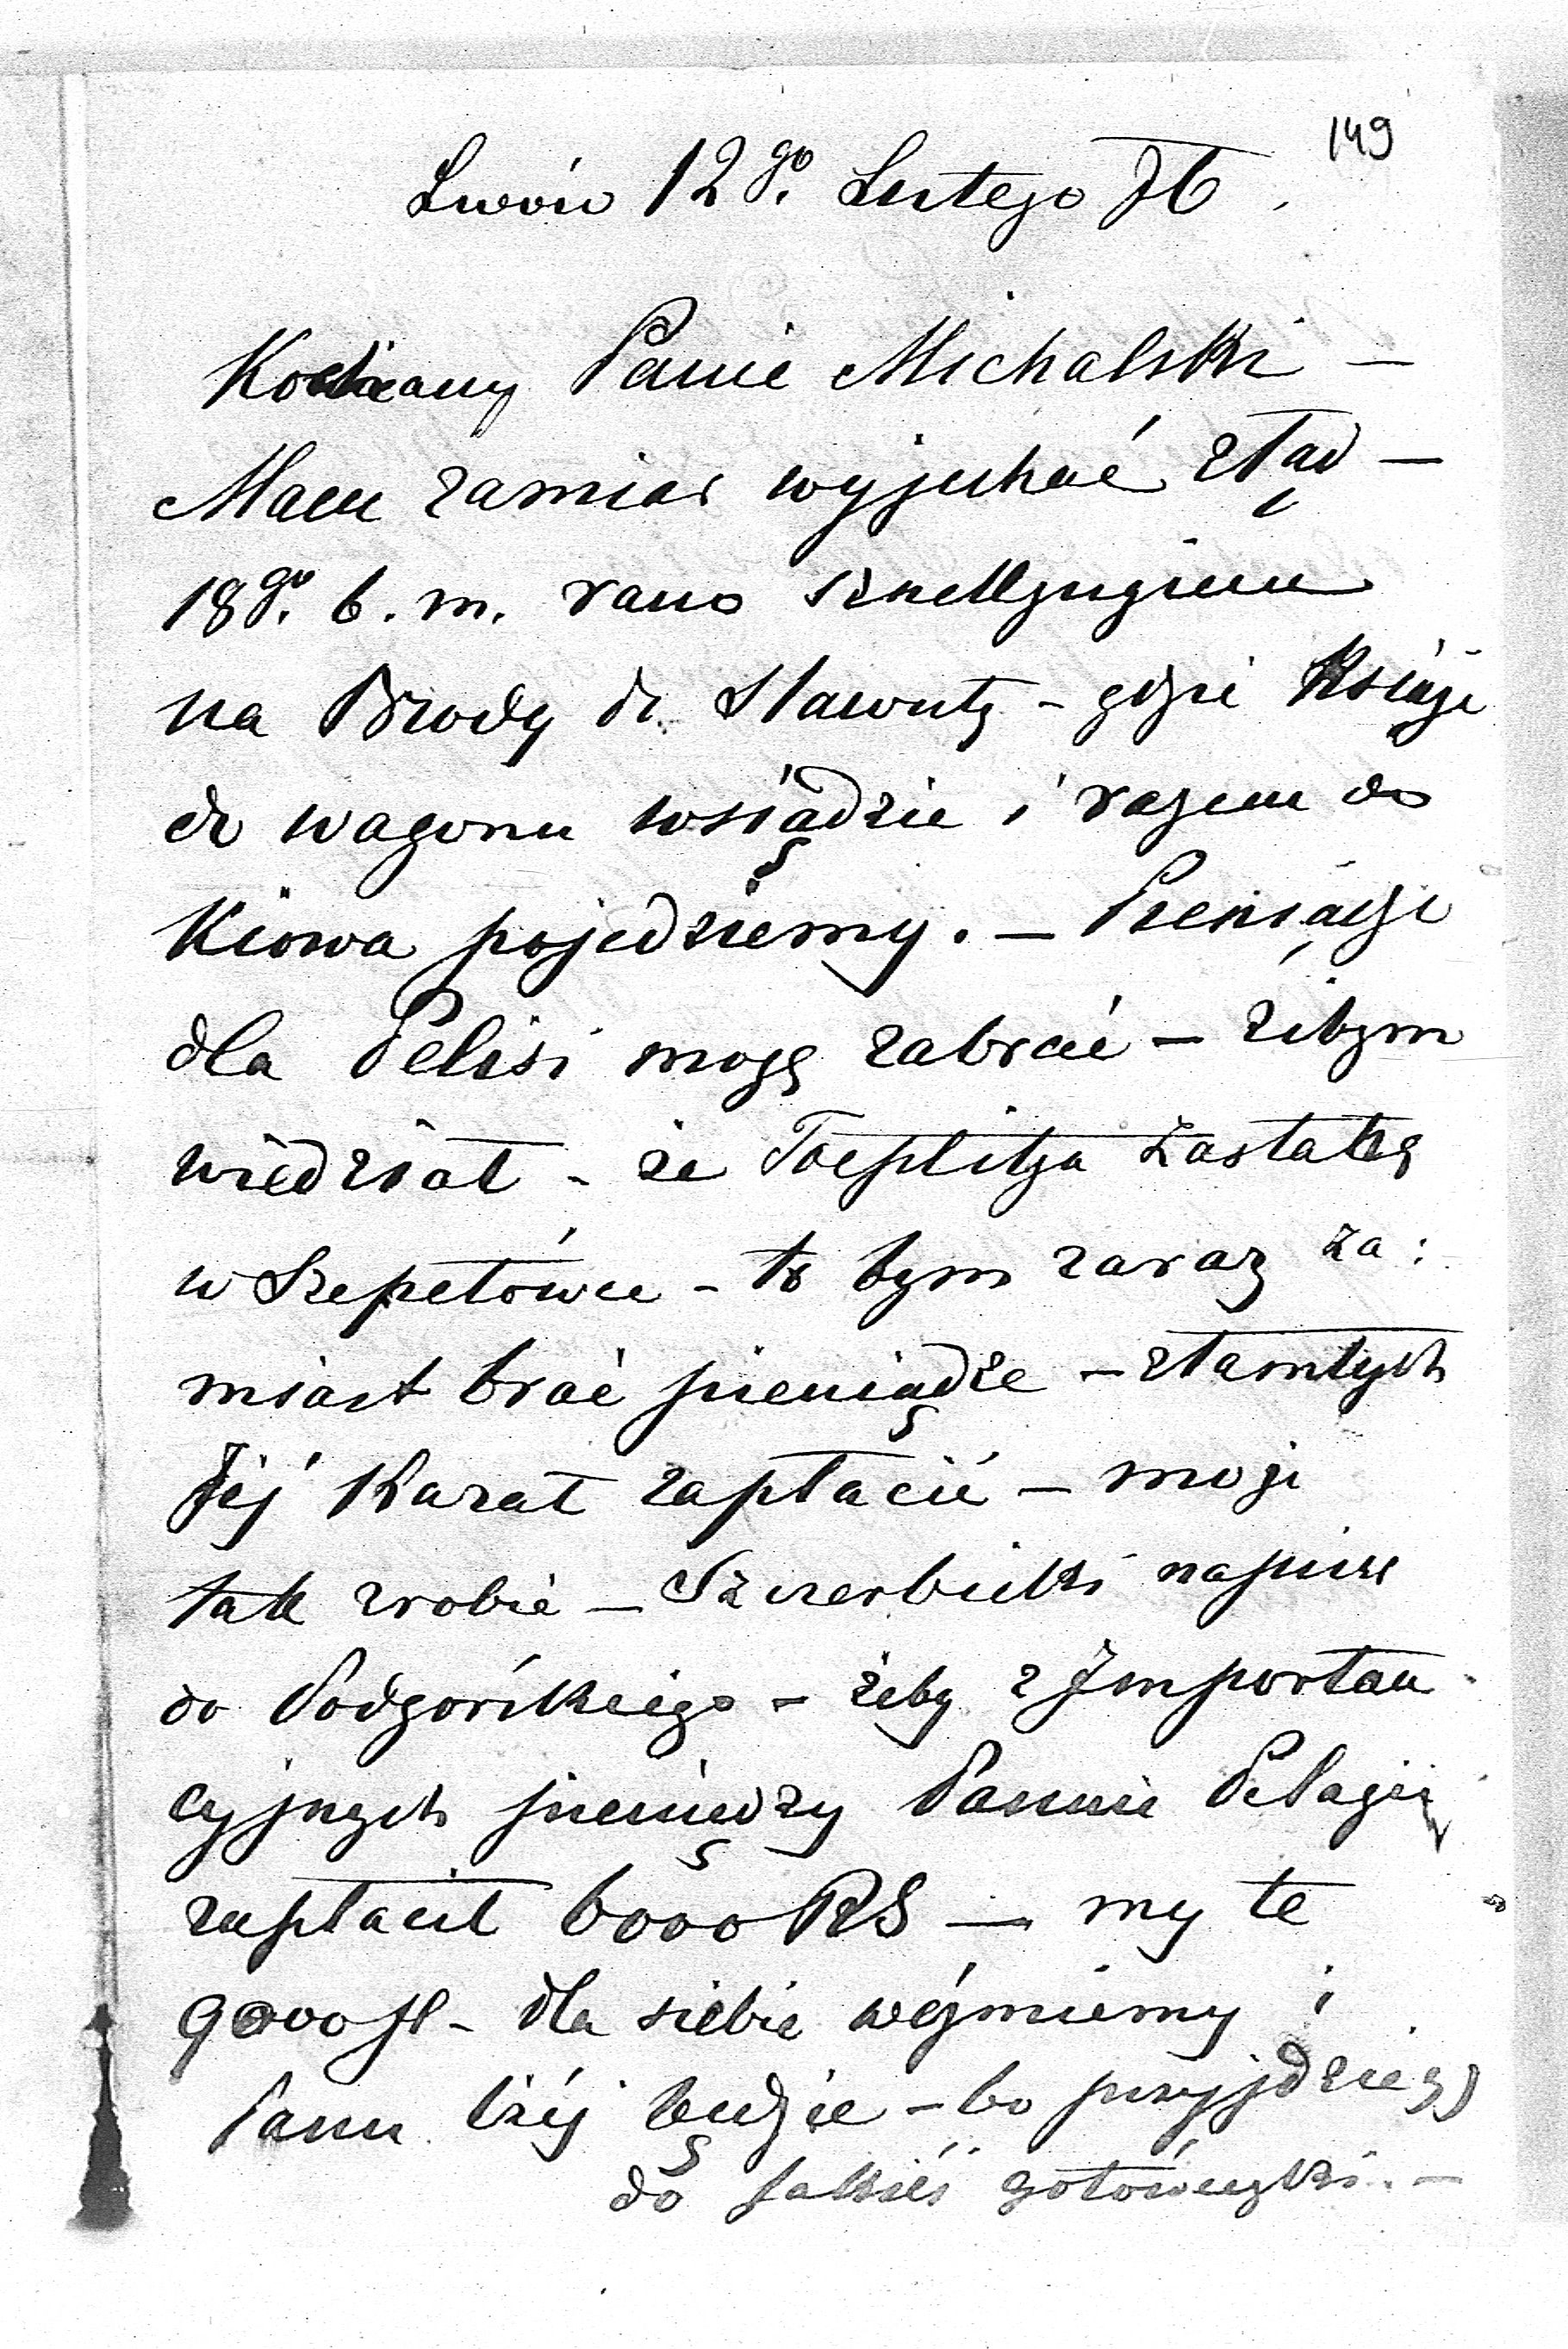 149
Lwów 12go. Lutego 76.
Kochany Panie Michalski —
Mam zamiar wyjechać ztąd —
18go. b. m. rano sznellzugiem
na Brody do Sławuty - gdzie Książe
do wagonu wsiądzie i razem do
Kiowa pojedziemy. — Pieniądze
dla Pelisi mogę zabrać — żebym
wiedział - że Toeplitza zastanę
w Szepetówce - to bym zaraz za:
miast brać pieniądze — ztamtych
Jéj kazał zapłacić — moje
tak zrobię — Szczerbicki napisze
do Podgórskiego - żeby z Importan
cyjnych pieniędzy Pannie Pelagii
zapłacił 6000 RS — my te
9000 fl - dla siebie wéźmiemy i
Panu lżéj będzie - bo przyjdzie
do jakiéś gotóweczki. —